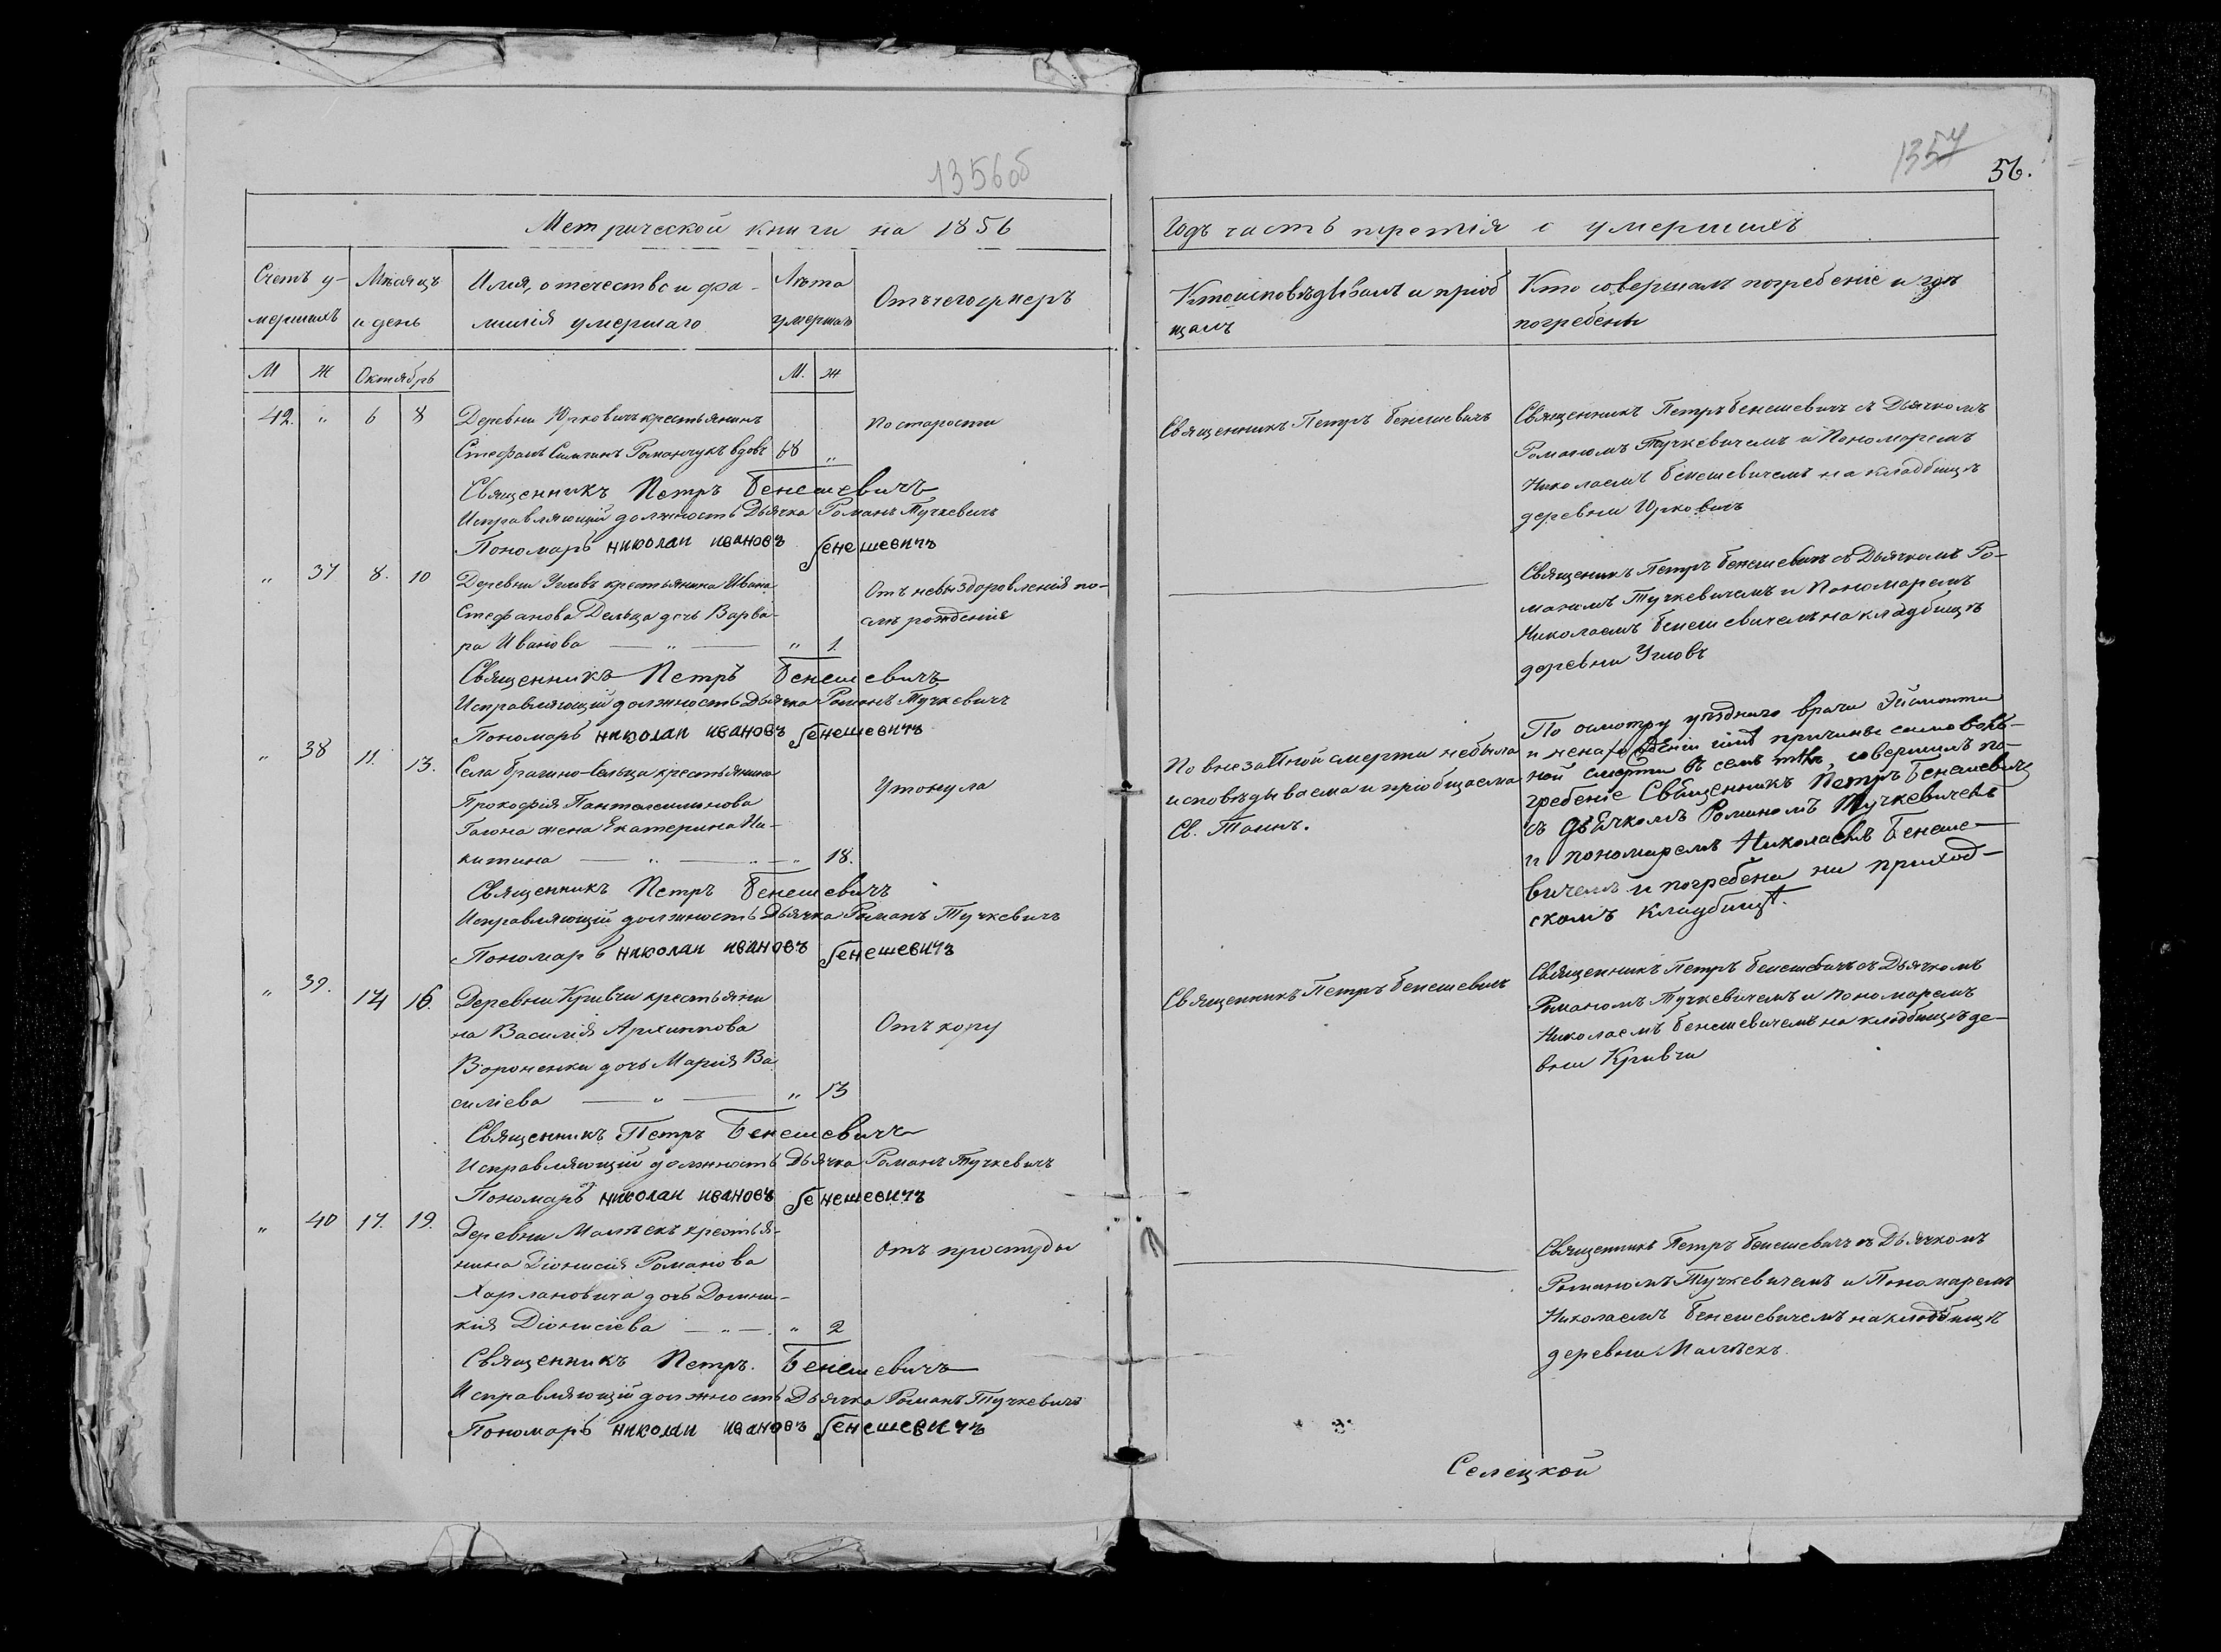 1356об
Метрической книги на 1856
Счетъ у-
мершихъ
Мѣсяцъ
и день
Имя, отечество и фа-
милія умершаго
Лѣта
умершаго
Отъ чего умеръ
М Ж Октябрь М. Ж
42. „ 6 8 Деревни Юрковичъ крестьянинъ По старости
Стефанъ Романчукъ вдовъ 68 „
Священникъ Петръ Бенешевичъ
Исправляющій должность Дьячка Романъ Тучкевичъ
Пономарь николаи ивановъ бенешевичъ
„ 37 8. 10 Деревни Угловъ крестьянина Ивана Отъ невыздоровленія по-
Стефанова дочь Варва- слѣ рожденія
ра Иванова — „ — „ 1.
Священникъ Петръ Бенешевичъ
Исправляющій должность Дьячка Романъ Тучкевичъ
Пономарь николаи ивановъ бенешевичъ
„ 38 11. 13. Села Брагино-Сельца крестьянина Утонула
Прокофія Пантелеимонова
жена Екатерина Ни-
китина — „ — „ — „ 18.
Священникъ Петръ Бенешевичъ
Исправляющій должность Дьячка Романъ Тучкевичъ
Пономарь николаи ивановъ бенешевичъ
„ 39. 14 16. Деревни Кривчи крестьяни
на Василія Архиппова Отъ кору
Вороненки дочь Марія Ва
силіева — „ — „ 13
Священникъ Петръ Бенешевичъ
Исправляющій должность Дьячка Романъ Тучкевичъ
Пономарь николаи ивановъ бенешевичъ
„ 40 17. 19. Деревни Малѣекъ крестья-
нина Діонисія Романова Отъ простуды
Харлановича дочь Домни-
кія Діонисіева — „ — „ 2
Священникъ Петръ. Бенешевичъ
Исправляющій должность Дьячка Романъ Тучкевичъ
Пономарь николаи ивановъ бенешевичъ
1357
56.
годъ часть третія о умершихъ
Кто исповѣдывалъ и пріоб
щалъ
Кто совершалъ погребеніе и гдѣ
погребены
Священникъ Петръ Бенешевичъ
Священникъ Петръ Бенешевичъ съ Дьячкомъ
Романомъ Тучкевичемъ и Пономаремъ
Николаемъ Бенешевичемъ на кладбищѣ
деревни Юрковичъ
Священникъ Петръ Бенешевичъ съ Дьячкомъ Ро-
маномъ Тучкевичемъ и Пономаремъ
Николаемъ Бенешевичемъ на кладбищѣ
деревни Угловъ
По внезапной смерти небыла
исповѣдываема и пріобщаема
Св. Таинъ.
По осмотру уѣзднаго врача
и ненахожденіи причины самоволь-
ной смерти въ семъ тѣлѣ, совершилъ по-
гребеніе Священникъ Петръ Бенешевичъ
съ дьячкомъ Романомъ Тучкевичемъ
и пономаремъ Николаемъ Бенеше-
вичемъ и погребена на приход-
скомъ кладбищѣ.
Священникъ Петръ Бенешевичъ
Священникъ Петръ Бенешевичъ съ Дьячкомъ
Романомъ Тучкевичемъ и Пономаремъ
Николаемъ Бенешевичемъ на кладбищѣ де-
вни Кривчи
Священникъ Петръ Бенешевичъ съ Дьячкомъ
Романомъ Тучкевичемъ и Пономаремъ
Николаемъ Бенешевичемъ на кладбищѣ
деревни Малѣекъ.
Селецкой